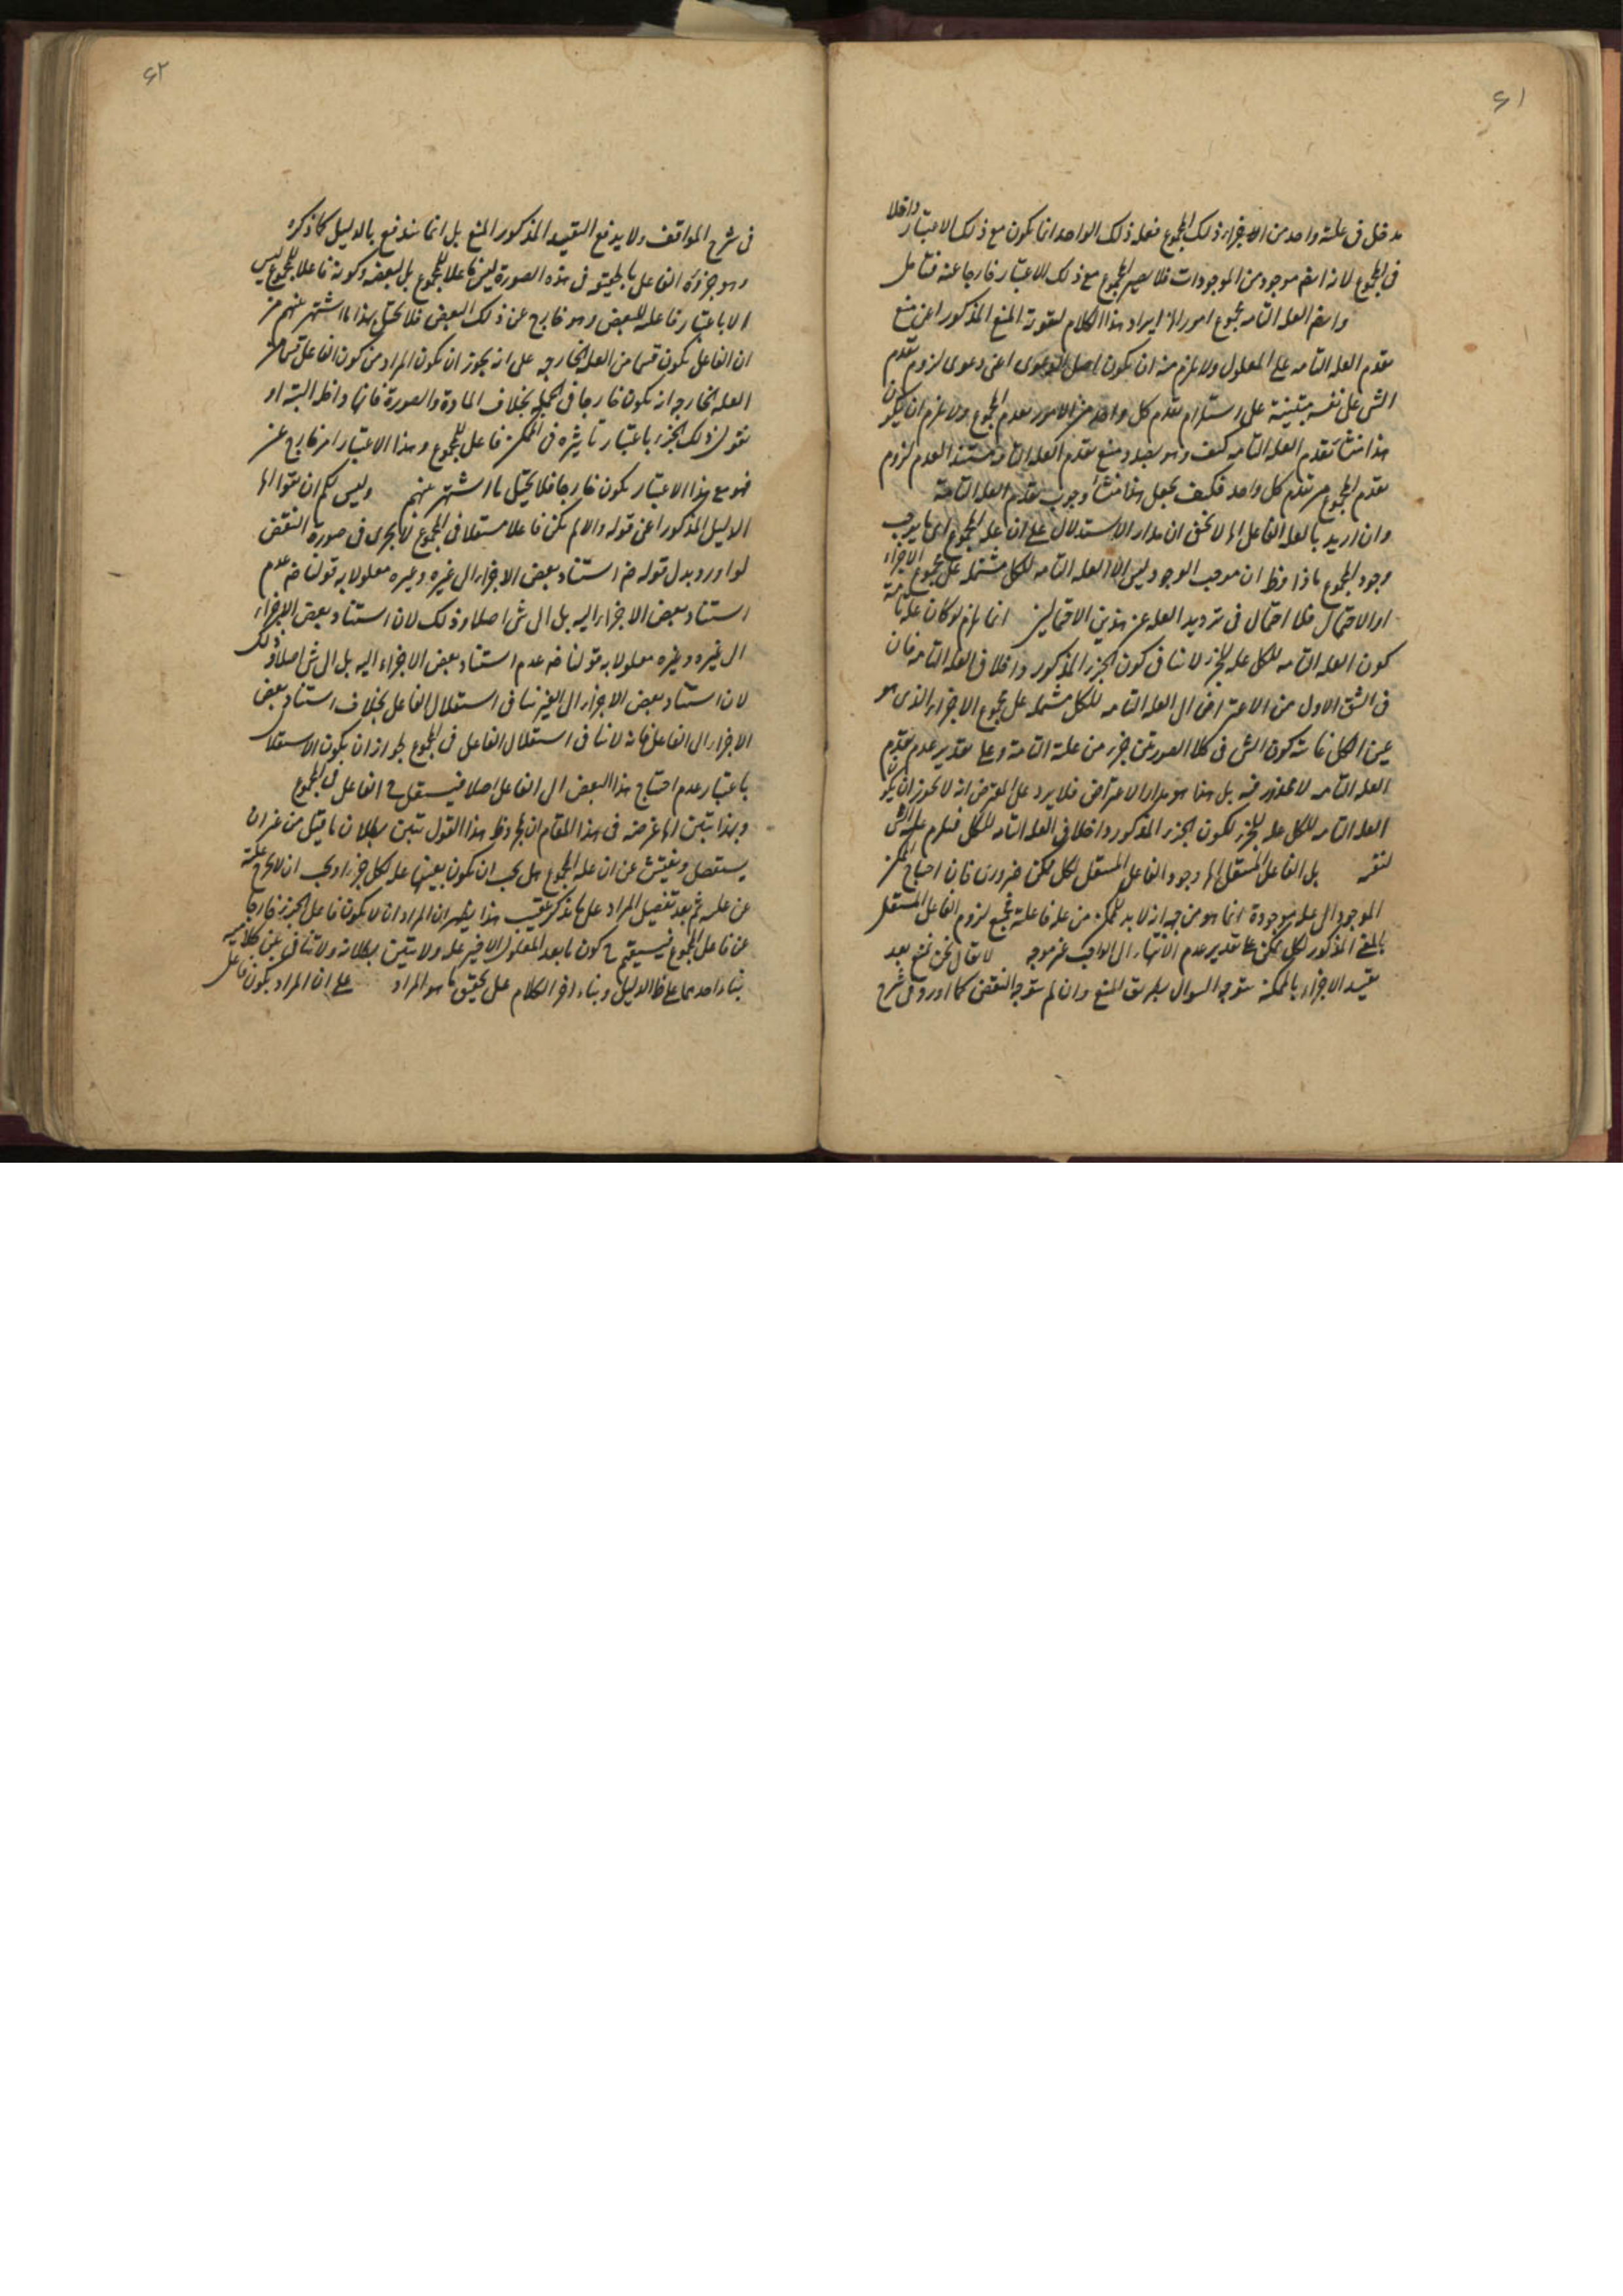 ۶۱
مدخل فى علة واحد من الاجزاء ذلك المجموع فعلة ذلك الواحد انما يكون مع ذلك الاعتبار داخلا
فى المجموع لانه ايضا موجود من الموجودات فلا يصير المجموع مع ذلك الاعتبار خارجا عنه فتامل
وايضا العلة التامة مجموع امور الخ ايراد هذا الكلام لتقوية المنع المذكور اعنى منع
تقدم العلة التامة على المعلول ولا يلزم منه ان يكون اصل الدعوى اعنى دعوى لزوم تقدم
الشى على نفسه مبتنية على استلزام تقدم كل واحد من الامور تقدم المجموع ولا يلزم ان يكون
هذا منشأ تقدم العلة التامة كيف وهو بصدد منع تقدم العلة التامة مستندا لعدم لزوم
تقدم المجموع من تقدم كل واحد فكيف يجعل هذا منشأ وجوب تقدم العلة التامة
وان اريد بالعلة الفاعل الخ لا يخفى ان مدار الاستدلال على ان علة المجموع اى ما يوجب
وجود المجموع ماذا وظ ان موجب الوجود ليس الا العلة التامة للكل مشتملة على مجموع الاجزاء
او الاحتمال فلا احتمال فى ترديد العلة عن هذين الاحتمالين انما يلزم لو كان علة تامة
كون العلة التامة للكل علة للجزء لا ينافى كون الجزء المذكور داخلا فى العلة التامة فان
فى الشق الاول من الاعتراض ان العلة التامة للكل مشتملة على مجموع الاجزاء الذى هو
عين الكل غايته كون الشى فى كلا الصورتين جزء من علته التامة وعلى تقدير عدم تقدم
العلة التامة لا محذور فيه بل هذا هو مدار الاعتراض فلا يرد على المعترض انه لا يجوز ان يكون
العلة التامة للكل علة للجزء لكون الجزء المذكور داخلا فى العلة التامة للكل فيلزم علية الشى
لنفسه بل الفاعل المستقل الخ وجود الفاعل المستقل لكل ممكن ضرورى فان احتياج الممكن
الموجود الى علة موجودة انما هو من جهة انه لابد للممكن من علة فاعلة فمنع لزوم الفاعل المستقل
بالمعنى المذكور لكل ممكن على تقدير عدم الانتهاء الى الواجب غير موجه لا يقال نحن نمنع بعد
تقييد الاجزاء بالممكنة يتوجه السؤال بطريق المنع وان لم يتوجه النقض كما اورد فى شرح
۶۲
فى شرح المواقف ولا يدفع التقييد المذكور المنع بل انما يندفع بالدليل كما ذكره
وهو جزؤه الفاعل بالحقيقة فى هذه الصورة ليس فاعلا للمجموع بل لبعضه وكونه فاعلا للمجموع ليس
الا باعتبار فاعلية للبعض وهو خارج عن ذلك البعض فلا يختل بهذا ما اشتهر عنهم من
ان الفاعل يكون قسما من العلة الخارجة على انه يجوز ان يكون المراد من كون الفاعل قسما من
العلة الخارجة انه يكون خارجا فى الجملة بخلاف المادة والصورة فانها داخلة البتة او
نقول ذلك الجزء باعتبار تاثيره فى الممكن فاعل للمجموع وهذا الاعتبار امر خارج عن
فهو مع هذا الاعتبار يكون خارجا فلا يختل ما اشتهر عنهم وليس لكم ان تقولوا الخ
الدليل المذكور اعنى قوله والا لم يكن فاعلا مستقلا فى المجموع لا يجرى فى صورة النقض
لو اورد بدل قوله ضر استناد بعض الاجزاء الى غيره وغيره معلولا به قولنا ضر عدم
استناد بعض الاجزاء اليه بل الى شى اصلا وذلك لان استناد بعض الاجزاء
الى غيره وغيره معلولا به قولنا ضر عدم استناد بعض الاجزاء اليه بل الى شى اصلا وذلك
لان استناد بعض الاجزاء الى الغير ينافى استقلال الفاعل بخلاف استناد بعض
الاجزاء الى الفاعل فانه لا ينافى استقلال الفاعل فى المجموع لجواز ان يكون الاستقلال
باعتبار عدم احتياج هذا البعض الى الفاعل اصلا فيستقل ح الفاعل فى المجموع
وبهذا يتبين الخ غرضه فى هذا المقام ان بملاحظة هذا القول يتبين بطلان ما قيل من غير ان
يستفصل ويفتش عن ان علة المجموع هل يجب ان يكون بعينها علة لكل جزء او يجب ان لا يخرج علته
عن علته ثم بعد تفصيل المراد على ما يذكر عقيب هذا يظهر ان المراد ان لا يكون فاعل الجزء خارجا
عن فاعل المجموع فيستقيم ح كون ما بعد المعلول الاخير علة ولا يتبين بطلانه ولا تنافى بين كلاميه
بناء احدهما على ظ الدليل وبناء اخر الكلام على تحقيق ما هو المراد على ان المراد بكون فاعل